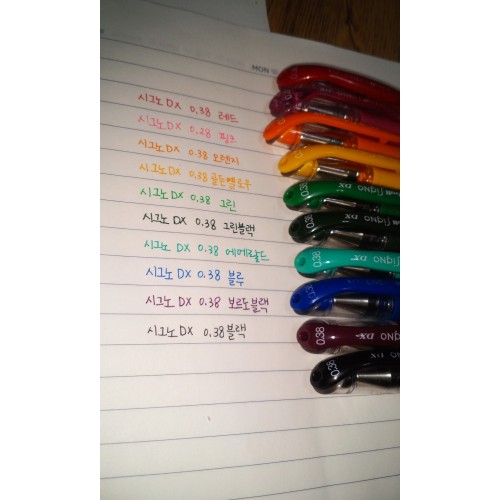 MON
시그노 DX 0.38 레드
시그노 DX 0.28 핑크
시그노 DX 0.38 오렌지
시그노 DX 0.38 골든옐로우
시그노 DX 0.38 그린
시그노 DX 0.38 그린블랙
시그노 DX 0.38 에메랄드
시그노 DX 0.38 블루
시그노 DX 0.38 보르도블랙
시그노 DX 0.38 블랙
0.38
0.38 DX signo
0.38 DX signo
0.38
0.38 DX signo
0.38